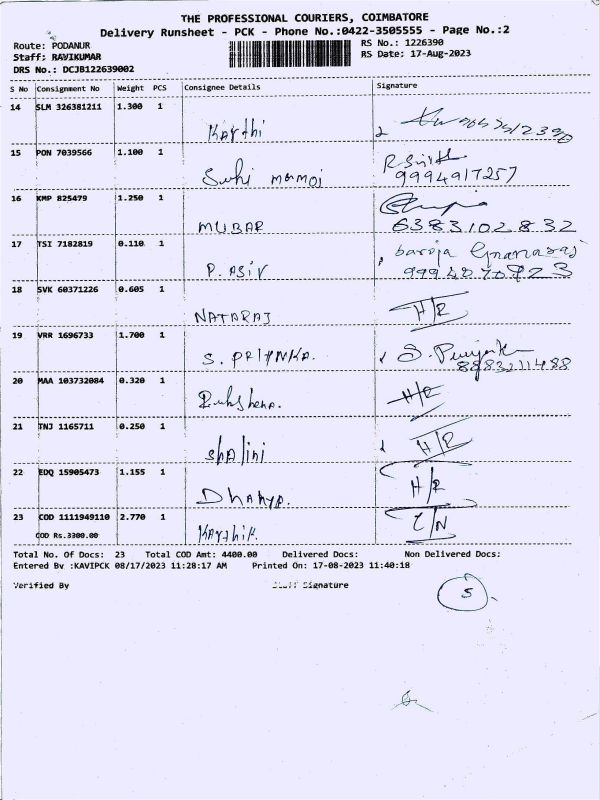 THE PROFESSIONAL COURIERS, COIMBATORE
Delivery Runsheet - PCK - Phone No.:0422-3505555 - Page No.:2
Route: PODANUR
RS No.: 1226390
Staff: RAVIKUMAR
RS Date: 17-Aug-2023
DRS No.: DCJB122639002
S No Consignment No Weight PCS Consignee Details Signature
14 SLM 326381211 1.300 1
Karthi
15 PON 7039566 1.100 1
Suhi
9994917257
16 KMP 825479 1.250 1
MUBAR
6383102832
17 TSI 7182819 0.110 1
P. ASIV
18 SVK 60371226 0.605 1
NATARAJ H/R
19 VRR 1696733 1.700 1
S. PRIYNKA.
20 MAA 103732084 0.320 1
H/R
21 TNJ 1165711 0.250 1
ShAlini H/R
22 EDQ 15905473 1.155 1
H/R
DHANYA.
23 COD 1111949110 2.770 1
COD Rs.3300.00 Karthik
Total No. Of Docs: 23 Total COD Amt: 4400.00 Delivered Docs: Non Delivered Docs:
Entered By :KAVIPCK 08/17/2023 11:28:17 AM Printed On: 17-08-2023 11:40:18
Verified By Staff Signature
5